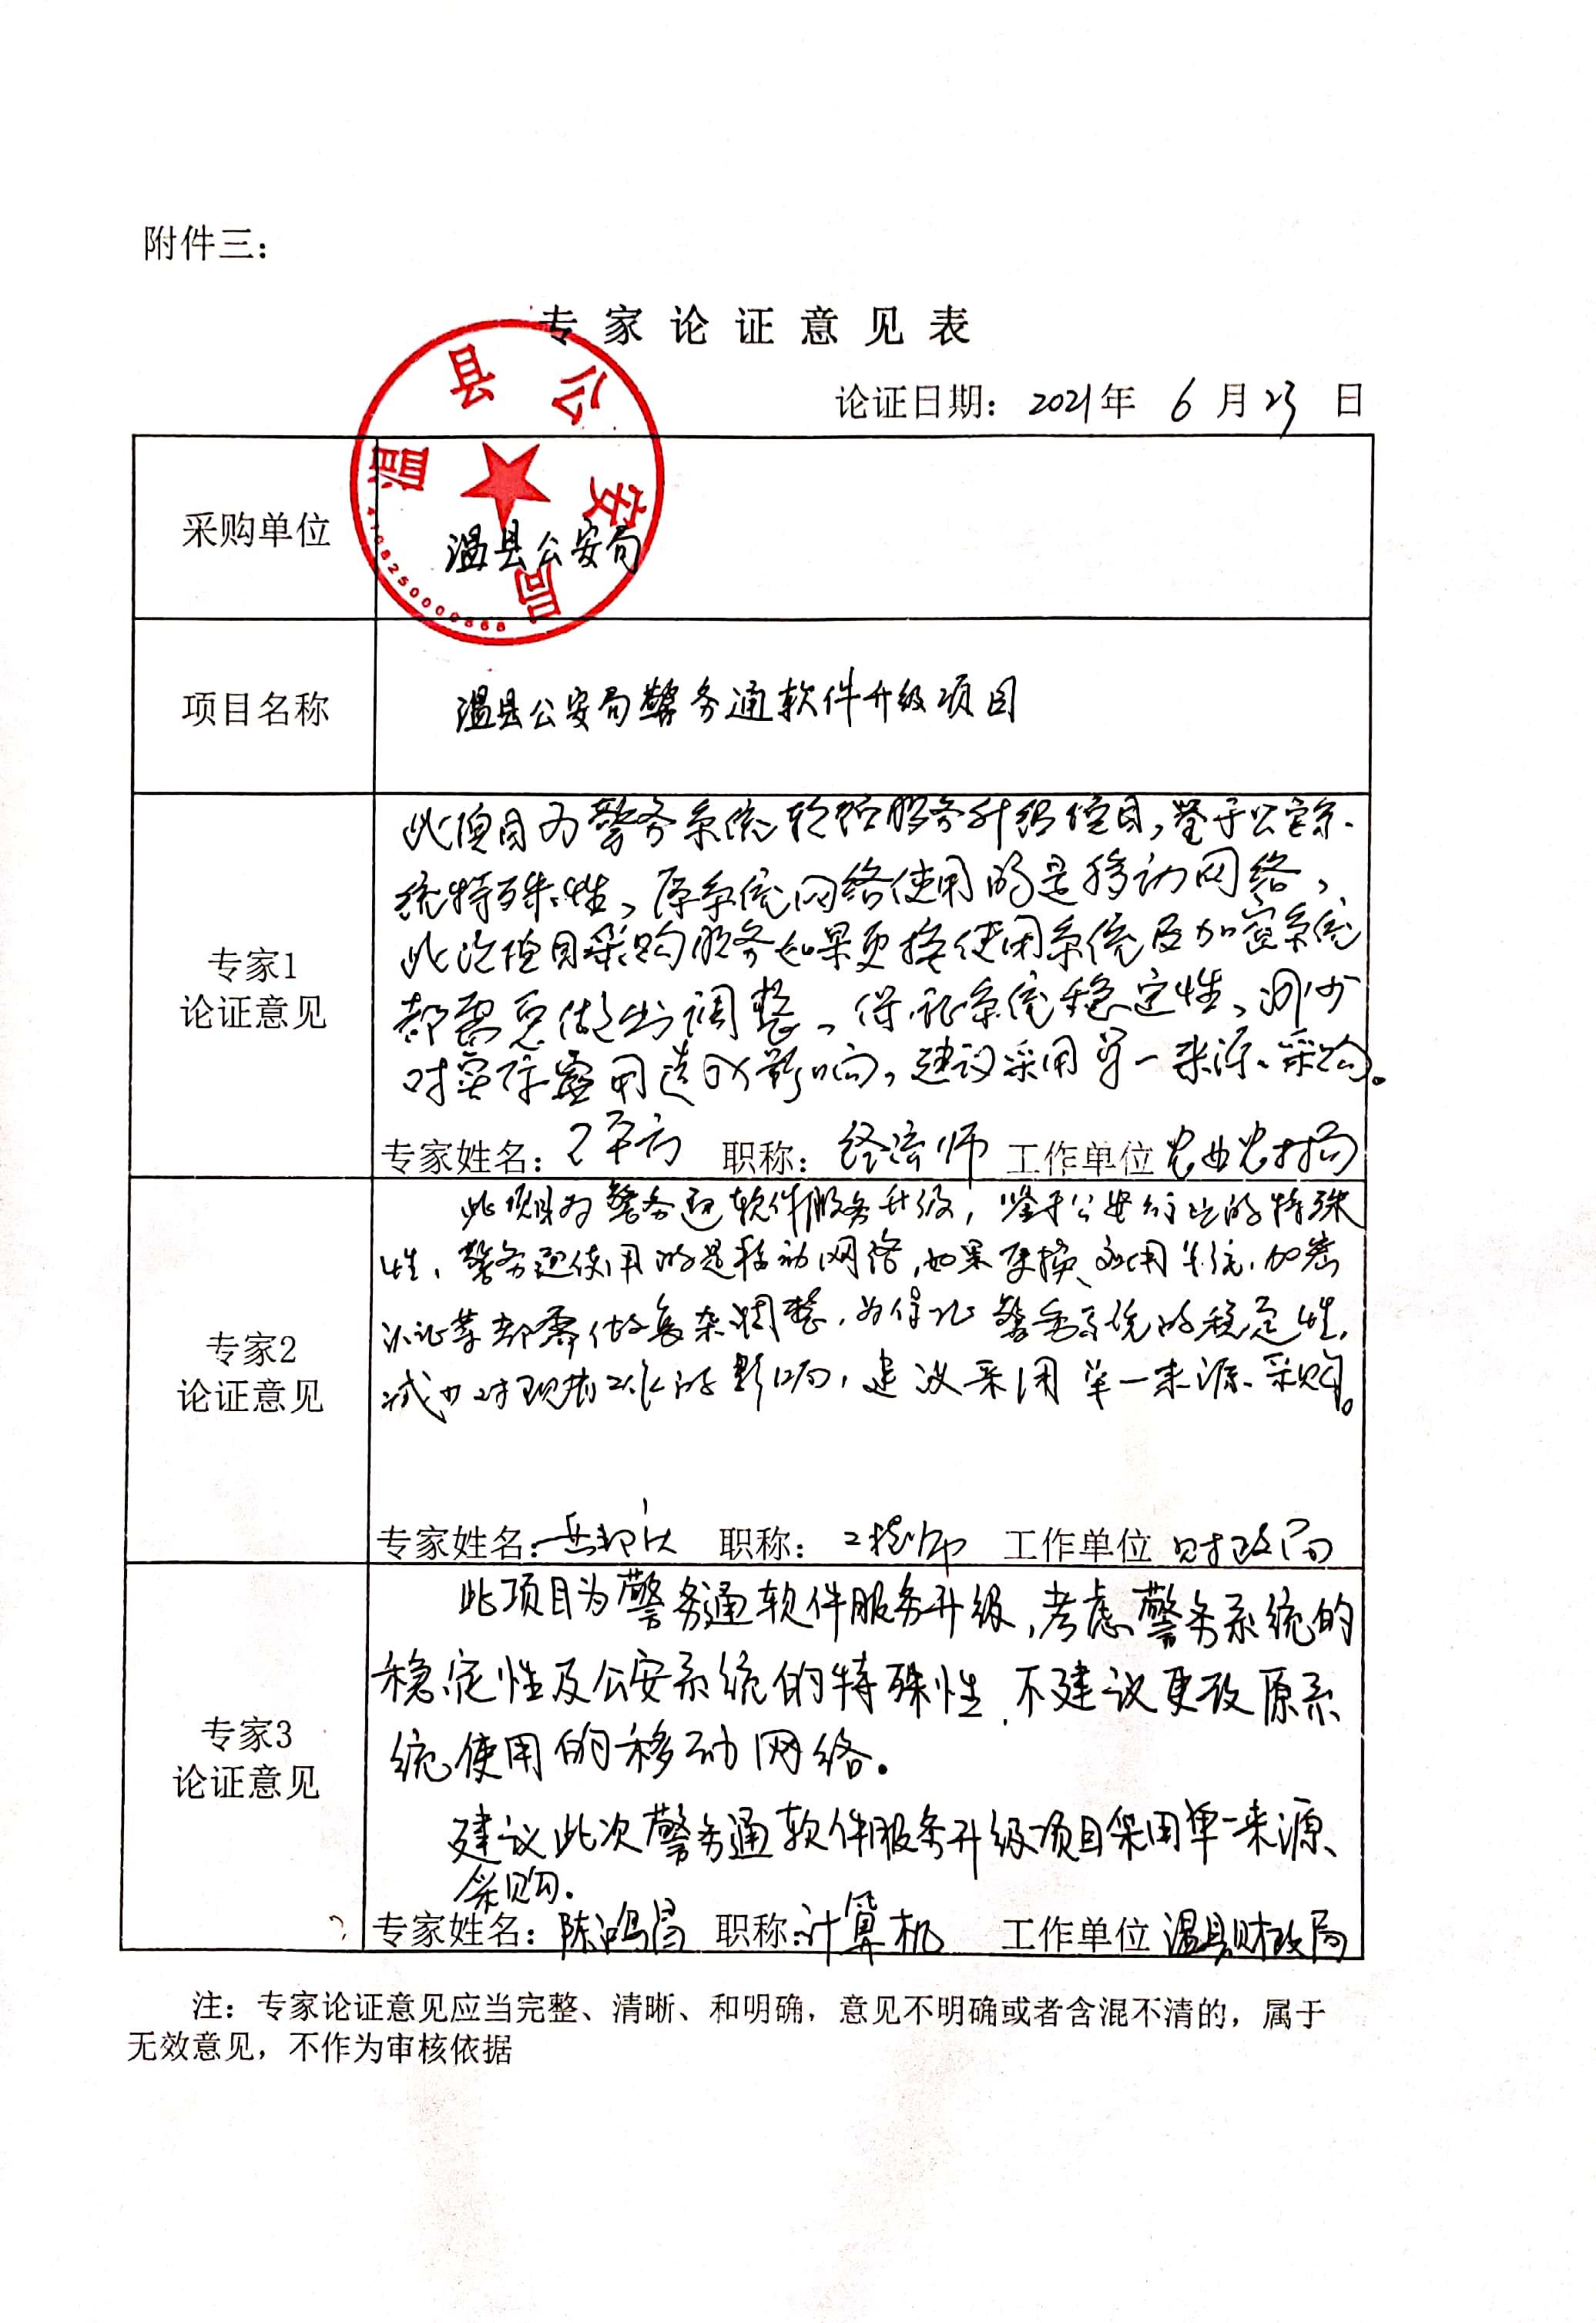 附件三：
专家论证意见表
论证日期：2021年 6 月 23 日
温县公安局
4108250000868
采购单位
温县公安局
项目名称
温县公安局警务通软件升级项目
专家1
论证意见
此项目为警务系统软件服务升级项目，鉴于公安系
统特殊性，原系统网络使用的是移动网络，
此次项目采购服务如果更换使用系统及加密系统
都需要做出调整，保证系统稳定性，减少
对实际应用造成影响，建议采用单一来源采购。
专家姓名： 职称：经济师 工作单位 农业农村局
专家2
论证意见
此项目为警务通软件服务升级，鉴于公安行业的特殊
性，警务通使用的是移动网络，如果更换，应用系统，加密
认证等都需做复杂调整，为保证警务系统的稳定性，
减少对现有工作的影响，建议采用单一来源采购。
专家姓名： 职称：工程师 工作单位 财政局
专家3
论证意见
此项目为警务通软件服务升级，考虑警务系统的
稳定性及公安系统的特殊性，不建议更改原系
统使用的移动网络。
建议此次警务通软件服务升级项目采用单一来源
采购。
专家姓名：陈鸿昌 职称：计算机 工作单位 温县财政局
注：专家论证意见应当完整、清晰、和明确，意见不明确或者含混不清的，属于
无效意见，不作为审核依据